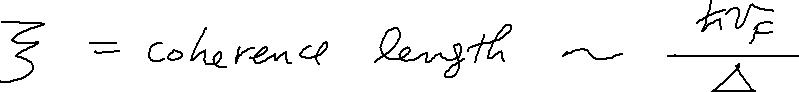 ξ = coherence length ~ ħv_F / Δ